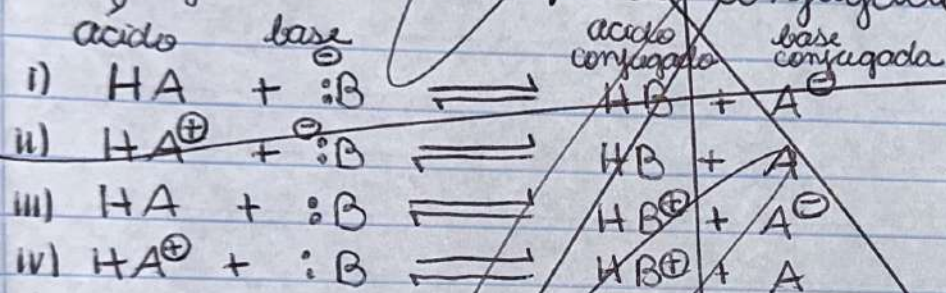 ácido base ácido conjugado base conjugada
i) HA + ⊖:B ⇌ HB + A⊖
ii) HA⊕ + ⊖:B ⇌ HB + A
iii) HA + :B ⇌ HB⊕ + A⊖
iv) HA⊕ + :B ⇌ HB⊕ + A